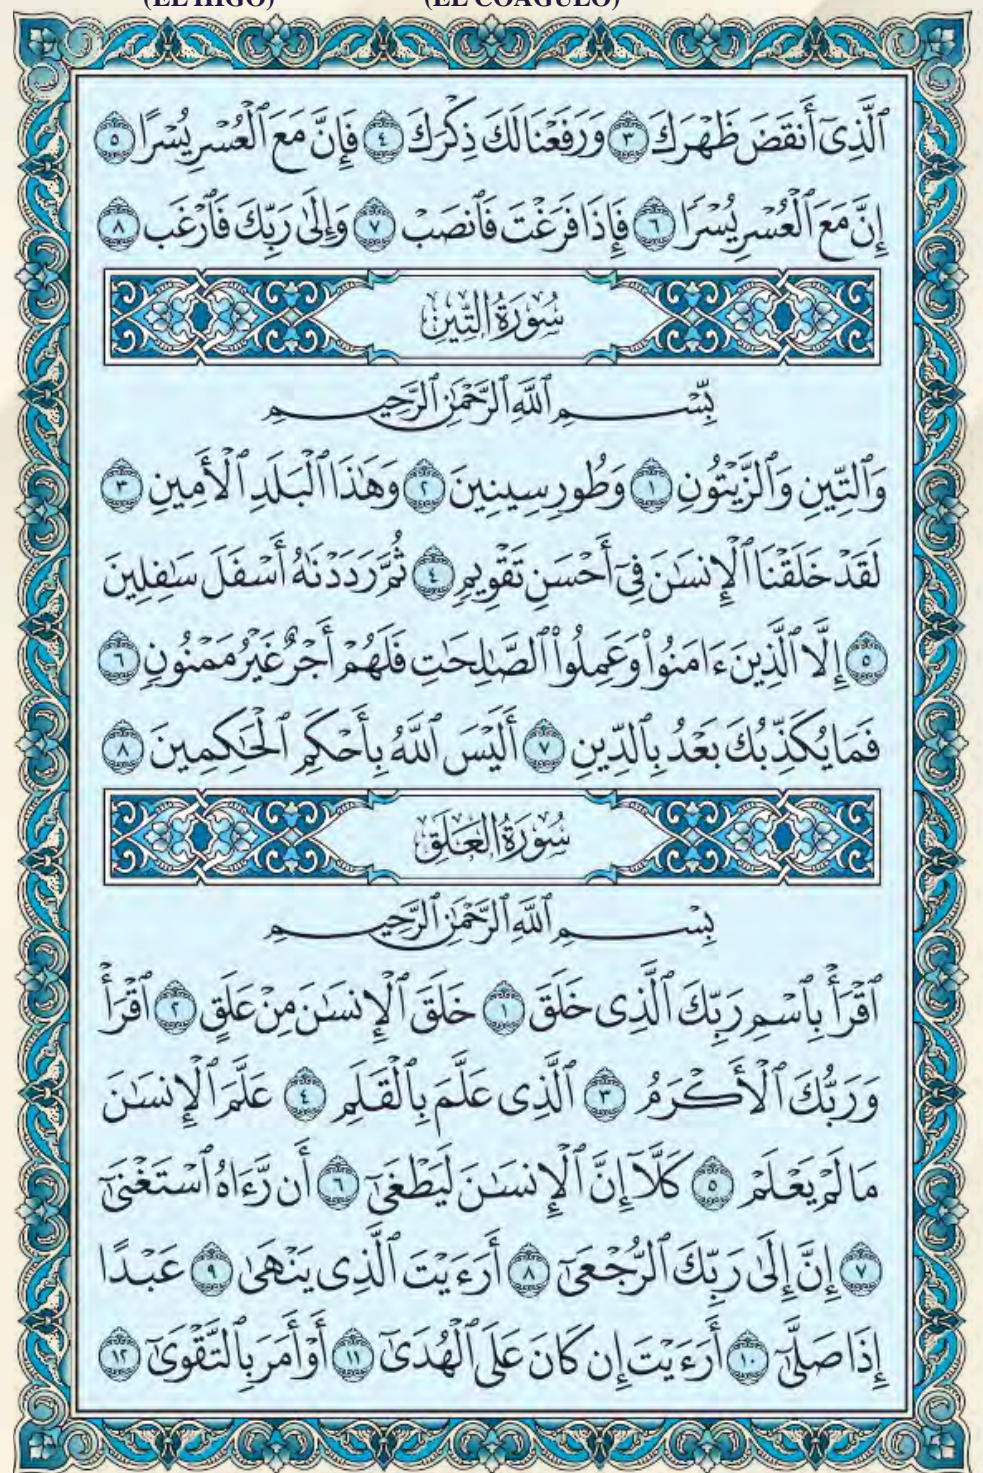 (EL HIGO) (EL COÁGULO)
ٱلَّذِىٓ أَنقَضَ ظَهْرَكَ ٣ وَرَفَعْنَا لَكَ ذِكْرَكَ ٤ فَإِنَّ مَعَ ٱلْعُسْرِ يُسْرًا ٥
إِنَّ مَعَ ٱلْعُسْرِ يُسْرًا ٦ فَإِذَا فَرَغْتَ فَٱنصَبْ ٧ وَإِلَىٰ رَبِّكَ فَٱرْغَب ٨
سُورَةُ التِّينِ
بِّسْمِ ٱللَّهِ ٱلرَّحْمَٰنِ ٱلرَّحِيمِ
وَٱلتِّينِ وَٱلزَّيْتُونِ ١ وَطُورِ سِينِينَ ٢ وَهَٰذَا ٱلْبَلَدِ ٱلْأَمِينِ ٣
لَقَدْ خَلَقْنَا ٱلْإِنسَٰنَ فِىٓ أَحْسَنِ تَقْوِيمٍ ٤ ثُمَّ رَدَدْنَٰهُ أَسْفَلَ سَٰفِلِينَ
٥ إِلَّا ٱلَّذِينَ ءَامَنُوا۟ وَعَمِلُوا۟ ٱلصَّٰلِحَٰتِ فَلَهُمْ أَجْرٌ غَيْرُ مَمْنُونٍ ٦
فَمَا يُكَذِّبُكَ بَعْدُ بِٱلدِّينِ ٧ أَلَيْسَ ٱللَّهُ بِأَحْكَمِ ٱلْحَٰكِمِينَ ٨
سُورَةُ العَلَقِ
بِسْمِ ٱللَّهِ ٱلرَّحْمَٰنِ ٱلرَّحِيمِ
ٱقْرَأْ بِٱسْمِ رَبِّكَ ٱلَّذِى خَلَقَ ١ خَلَقَ ٱلْإِنسَٰنَ مِنْ عَلَقٍ ٢ ٱقْرَأْ
وَرَبُّكَ ٱلْأَكْرَمُ ٣ ٱلَّذِى عَلَّمَ بِٱلْقَلَمِ ٤ عَلَّمَ ٱلْإِنسَٰنَ
مَا لَمْ يَعْلَمْ ٥ كَلَّآ إِنَّ ٱلْإِنسَٰنَ لَيَطْغَىٰٓ ٦ أَن رَّءَاهُ ٱسْتَغْنَىٰٓ
٧ إِنَّ إِلَىٰ رَبِّكَ ٱلرُّجْعَىٰٓ ٨ أَرَءَيْتَ ٱلَّذِى يَنْهَىٰ ٩ عَبْدًا
إِذَا صَلَّىٰٓ ١٠ أَرَءَيْتَ إِن كَانَ عَلَى ٱلْهُدَىٰٓ ١١ أَوْ أَمَرَ بِٱلتَّقْوَىٰٓ ١٢